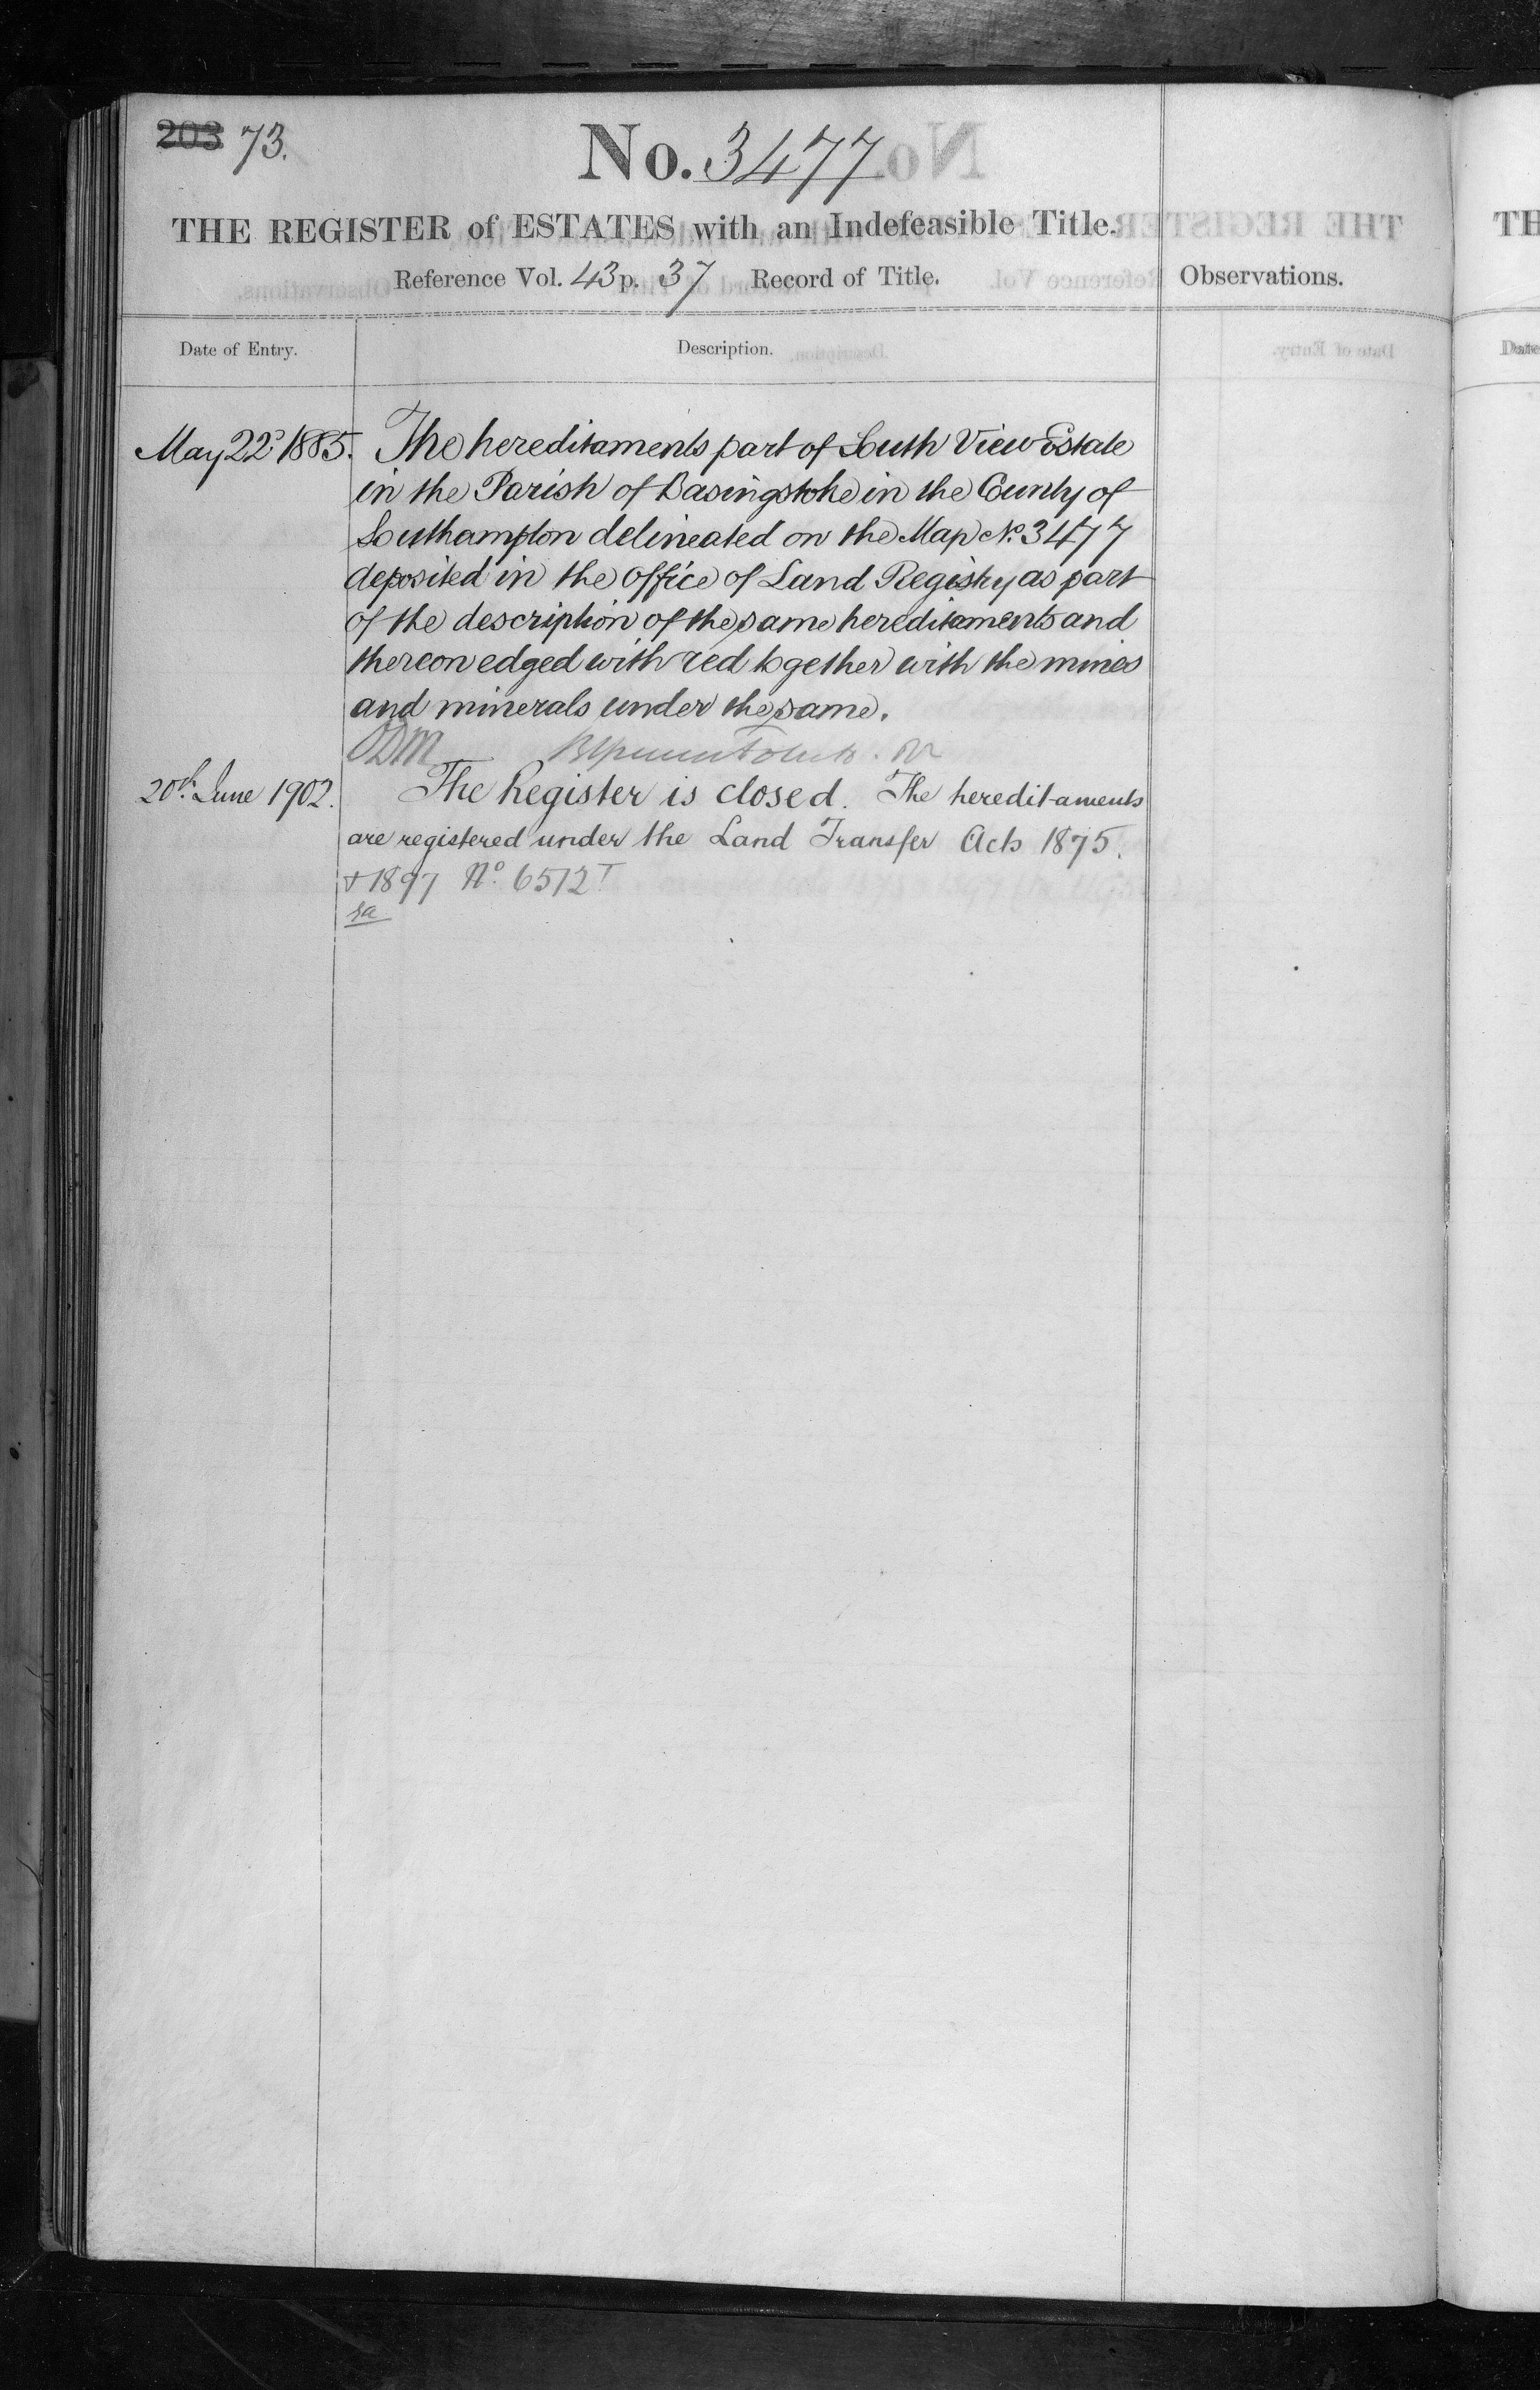 203 73.
No. 3477
THE REGISTER of ESTATES with an Indefeasible Title.
Reference Vol. 43 p. 37 Record of Title.
Observations.
Date of Entry.
Description.
May 22d 1885. The hereditaments part of South View Estate
in the Parish of Basingstoke in the County of
Southampton delineated on the Map No. 3477
deposited in the Office of Land Registry as part
of the description of the same hereditaments and
thereon edged with red together with the mines
and minerals under the same.
20th. June 1902. The Register is closed. The hereditaments
are registered under the Land Transfer Acts 1875.
+ 1897 No. 6512
TH
Date